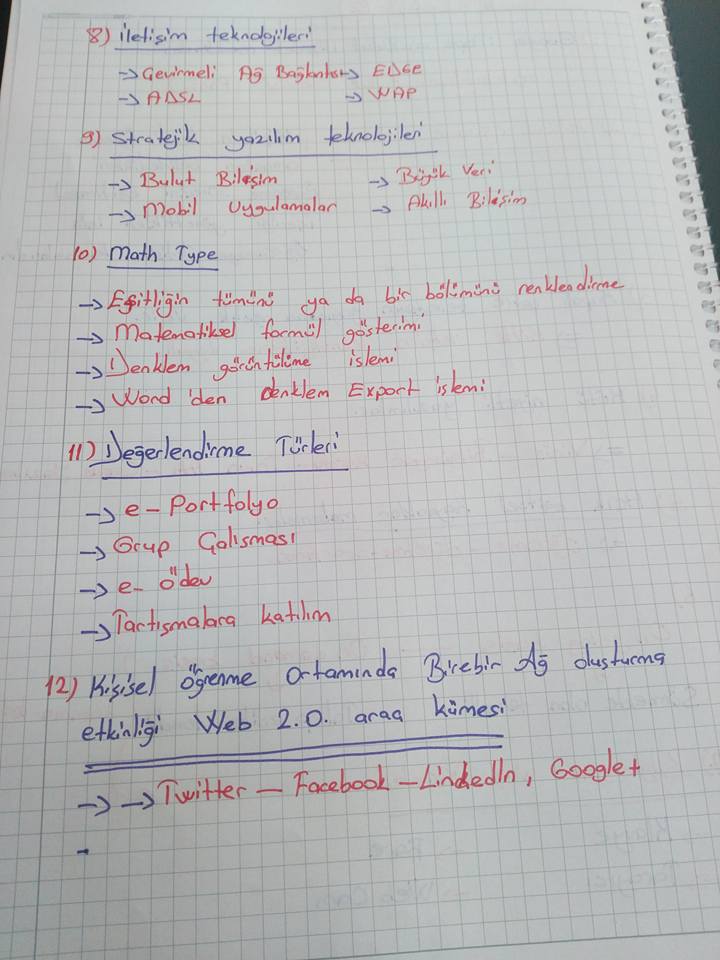 8) İletişim teknolojileri
→ Çevirmeli Ağ Bağlantısı → EDGE
→ ADSL → WAP
9) Stratejik yazılım teknolojileri
→ Bulut Bilişim → Büyük Veri
→ Mobil Uygulamalar → Akıllı Bilişim
10) Math Type
→ Eşitliğin tümünü ya da bir bölümünü renklendirme
→ Matematiksel formül gösterimi
→ Denklem görüntülüme işlemi
→ Word'den denklem Export işlemi
11) Değerlendirme Türleri
→ e-Portfolyo
→ Grup Çalışması
→ e-ödev
→ Tartışmalara katılım
12) Kişisel öğrenme Ortamında Birebir Ağ oluşturma
etkinliği Web 2.0. araç kümesi
→ → Twitter - Facebook - LinkedIn, Google+
-